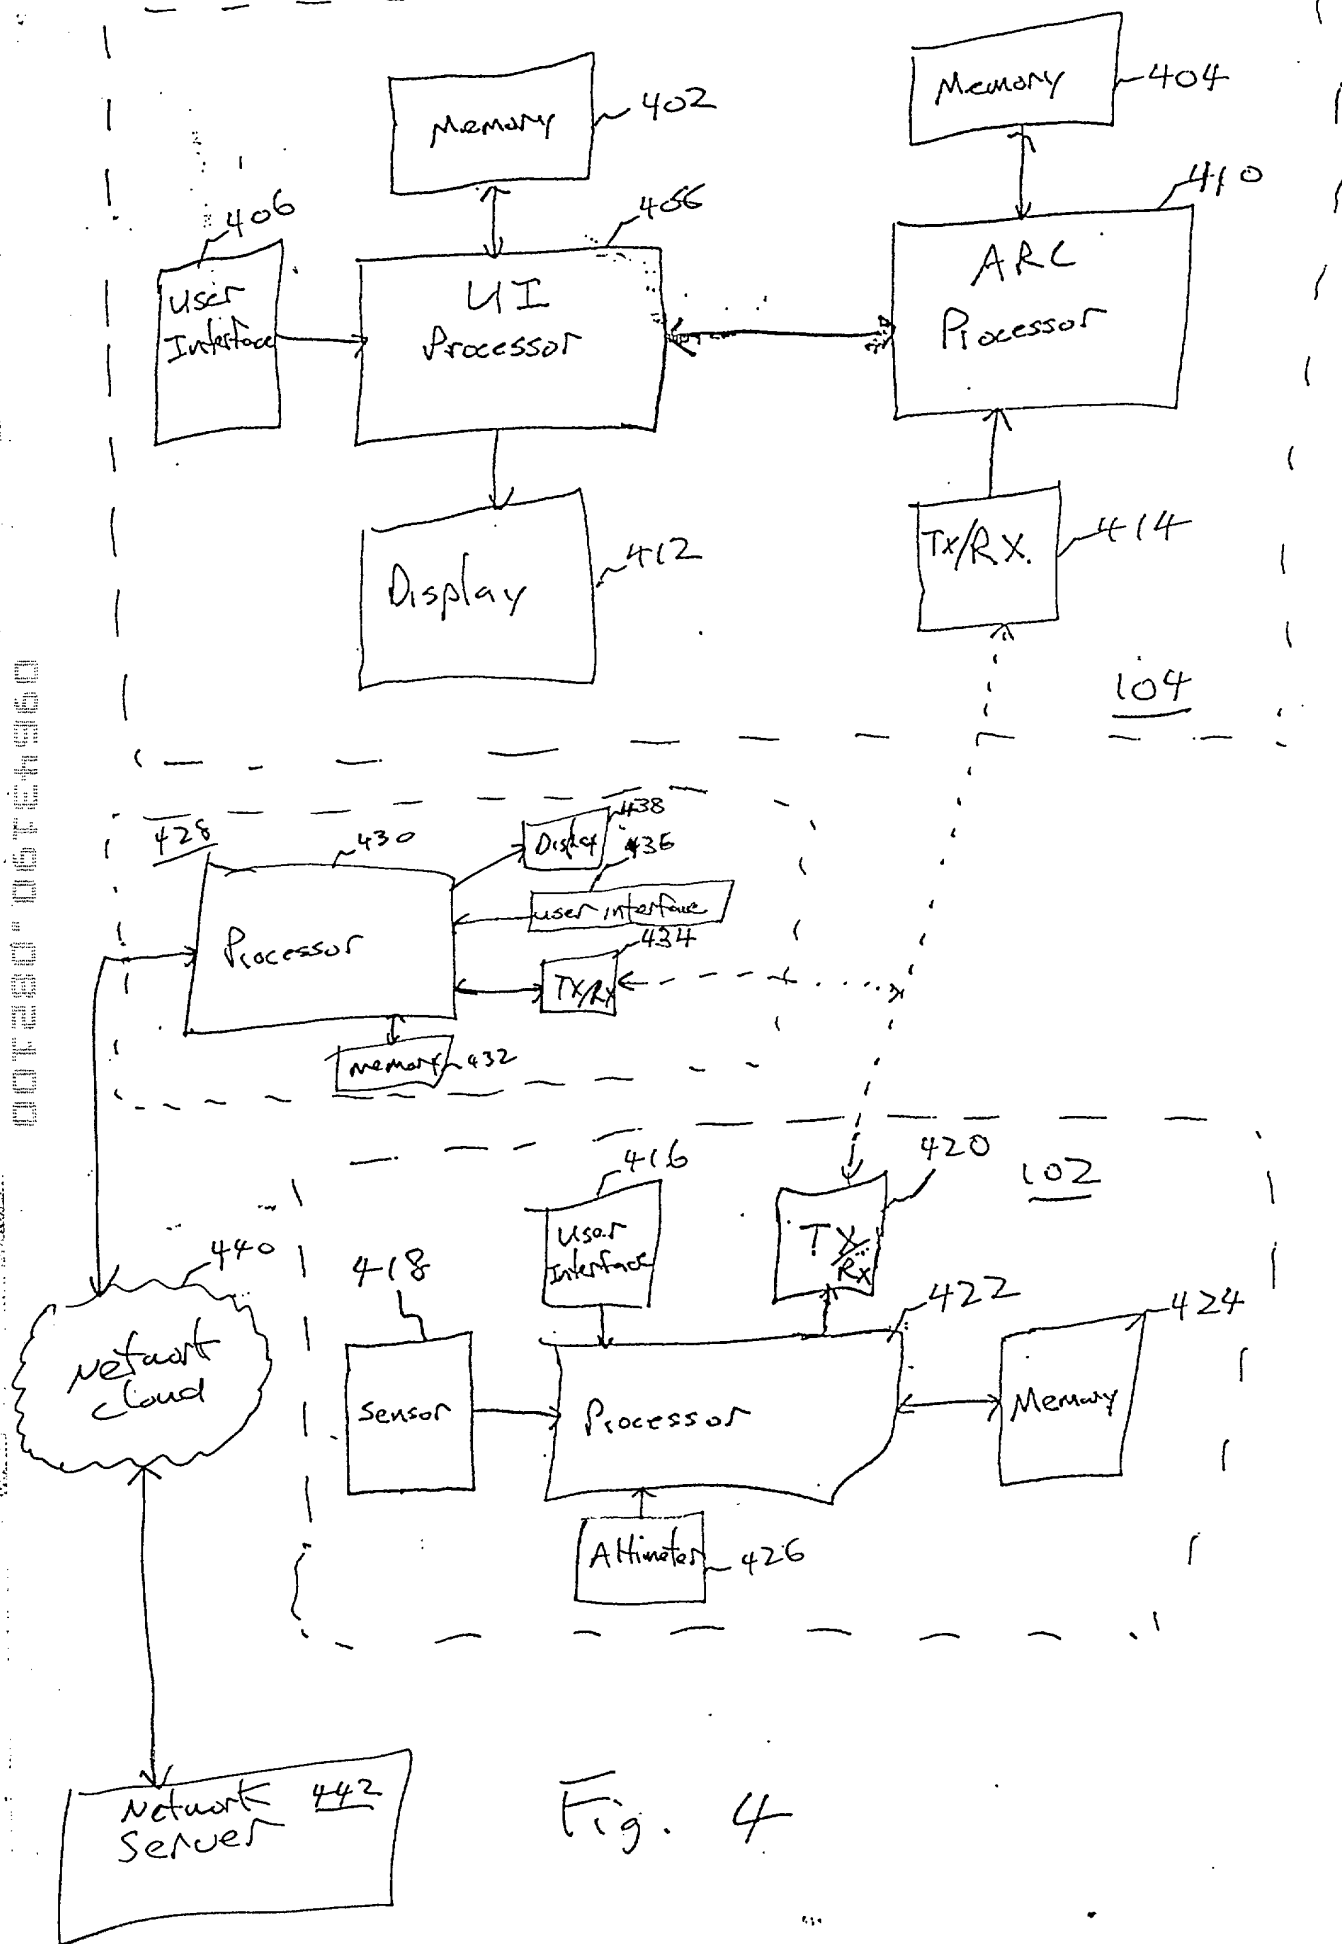 Memory
402
Memory
404
406
User
Interface
406
UI
Processor
410
ARC
Processor
Display
412
TX/RX.
414
104
428
430
Processor
438
Display
436
user interface
434
TX/RX
memory
432
416
User
Interface
420
TX/
RX
102
440
Network
cloud
418
Sensor
422
Processor
424
Memory
Altimeter
426
Network
Server
442
Fig. 4